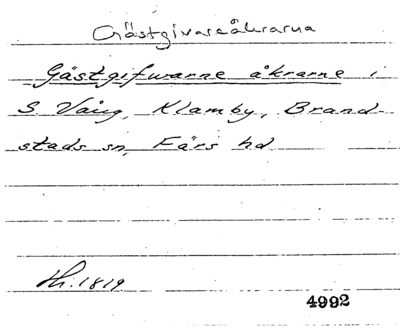 Gästgivareåkrarna
Gästgifwarne åkrarne i
S. Vång, Klamby, Brand-
stads sn, Färs hd
Hr. 1819
4992